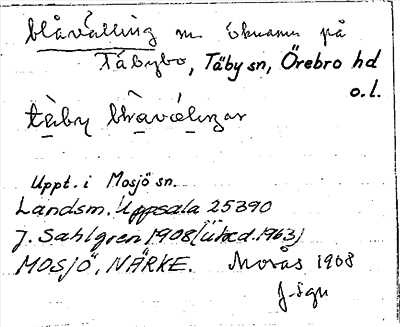 blåvälling m. öknamn på
Täbybo, Täby sn, Örebro hd
o.l.
tèby blavélingar
Uppt. i Mosjö sn.
Landsm. Uppsala 25390
J. Sahlgren 1908 (utcd. 1963)
MOSJÖ, NÄRKE. Morås 1908
J. Sgn